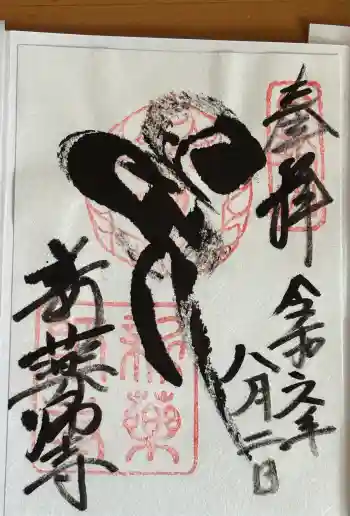 奉拝
令和六年
八月二日
新薬師寺
新薬